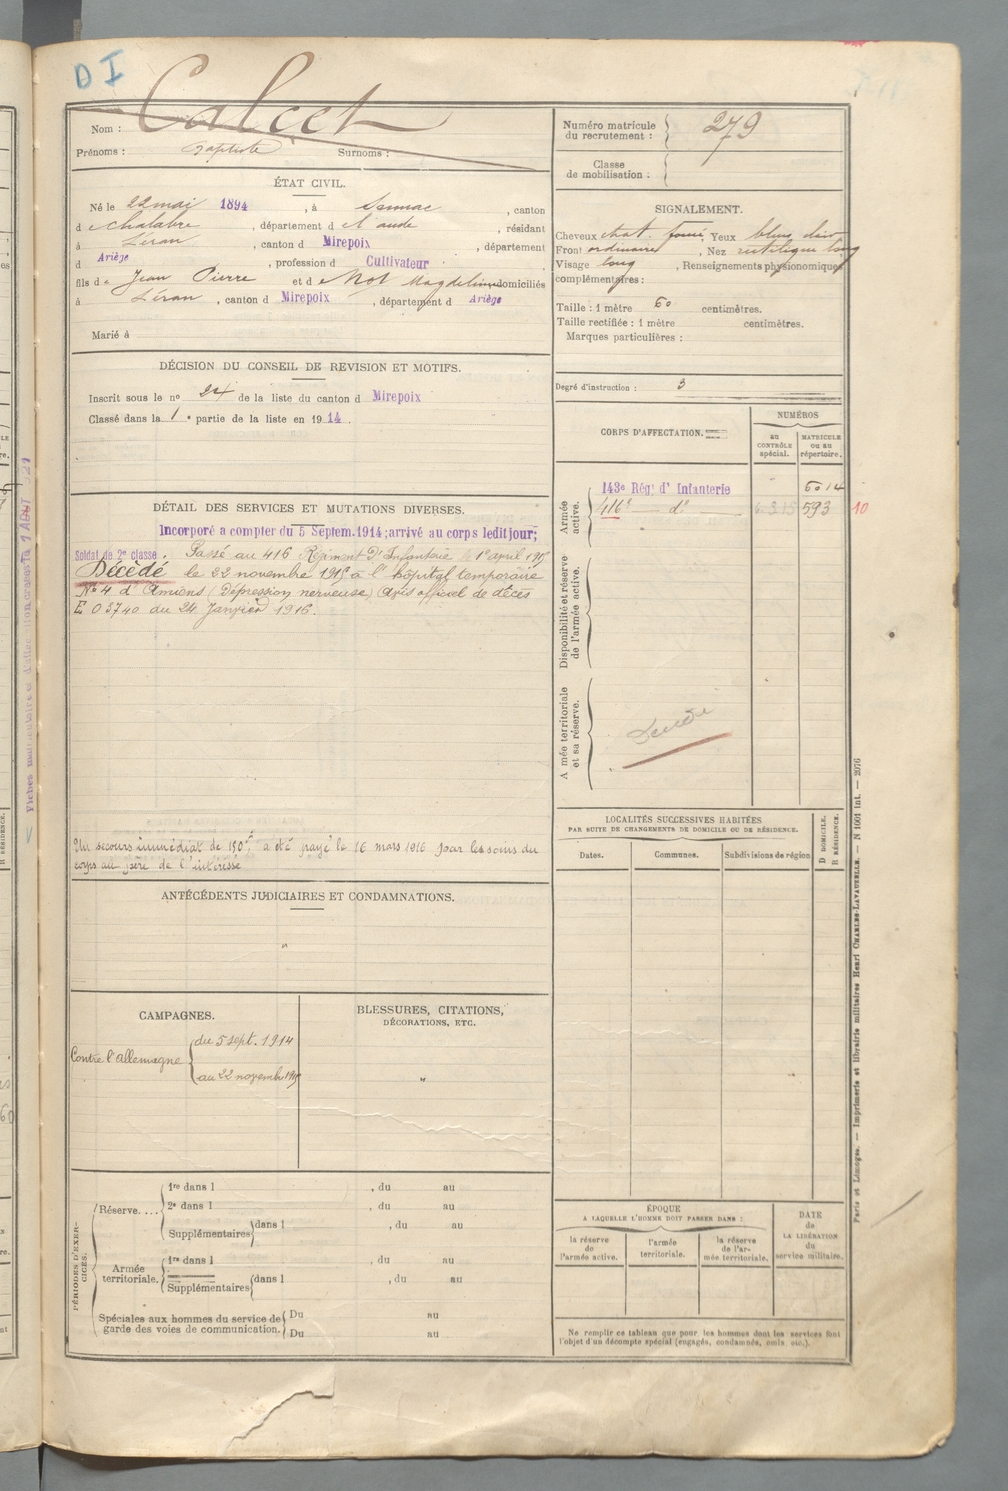 D I
Nom : Calcet
Prénoms : Baptiste Surnoms :
ÉTAT CIVIL.
Né le 22 mai 1894, à , canton
d e Chalabre, département d e l'aude, résidant
à Léran, canton d Mirepoix, département
d Ariège, profession d Cultivateur
fils d e Jean Pierre et d e Not Magdeleine domiciliés
à Léran, canton d Mirepoix, département d Ariège
Marié à
DÉCISION DU CONSEIL DE REVISION ET MOTIFS.
Inscrit sous le no 24 de la liste du canton d Mirepoix
Classé dans la 1 e partie de la liste en 1914.
DÉTAIL DES SERVICES ET MUTATIONS DIVERSES.
Incorporé a compter du 5 Septem. 1914; arrivé au corps ledit jour;
Soldat de 2e classe. Passé au 416 Régiment D'Infanterie le 1er april 1915
Décédé le 22 novembre 1915 à l'hôpital temporaire
No 4 d'Amiens (Dépression nerveuse) Avis officiel de décès
E 03740 du 24 Janvier 1916.
Un secours immédiat de 150f a été payé le 16 mars 1916 par les soins du
corps au père de l'intéressé
ANTÉCÉDENTS JUDICIAIRES ET CONDAMNATIONS.
"
CAMPAGNES.
Contre l'allemagne { du 5 sept. 1914
au 22 novembre 1915
BLESSURES, CITATIONS,
DÉCORATIONS, ETC.
"
PÉRIODES D'EXERCICES.
Réserve.... 1re dans l , du au
2e dans l , du au
Supplémentaires dans l , du au
Armée territoriale. 1re dans l , du au
Supplémentaires dans l , du au
Spéciales aux hommes du service de Du au
garde des voies de communication. Du au
Numéro matricule
du recrutement : 279
Classe
de mobilisation :
SIGNALEMENT.
Cheveux chat. foncé, Yeux bleu clair
Front ordinaire, Nez rectiligne long
Visage long, Renseignements physionomiques
complémentaires :
Taille : 1 mètre 60 centimètres.
Taille rectifiée : 1 mètre centimètres.
Marques particulières :
Degré d'instruction : 3
CORPS D'AFFECTATION.
NUMÉROS
AU CONTRÔLE spécial.
MATRICULE OU AU répertoire.
Armée active.
143e Régt d'Infanterie 6014
416e — do — 593 10
Disponibilité et réserve de l'armée active.
Armée territoriale et sa réserve.
LOCALITÉS SUCCESSIVES HABITÉES
PAR SUITE DE CHANGEMENTS DE DOMICILE OU DE RÉSIDENCE.
Dates. Communes. Subdivisions de région
D DOMICILE.
R RÉSIDENCE.
ÉPOQUE
A LAQUELLE L'HOMME DOIT PASSER DANS :
la réserve de l'armée active.
l'armée territoriale.
la réserve de l'armée territoriale.
DATE de LA LIBÉRATION du service militaire.
Ne remplir ce tableau que pour les hommes dont les services font
l'objet d'un décompte spécial (engagés, condamnés, omis, etc.).
Paris et Limoges. — Imprimerie et librairie militaires Henri CHARLES-LAVAUZELLE. — N 1001 Int. — 2076